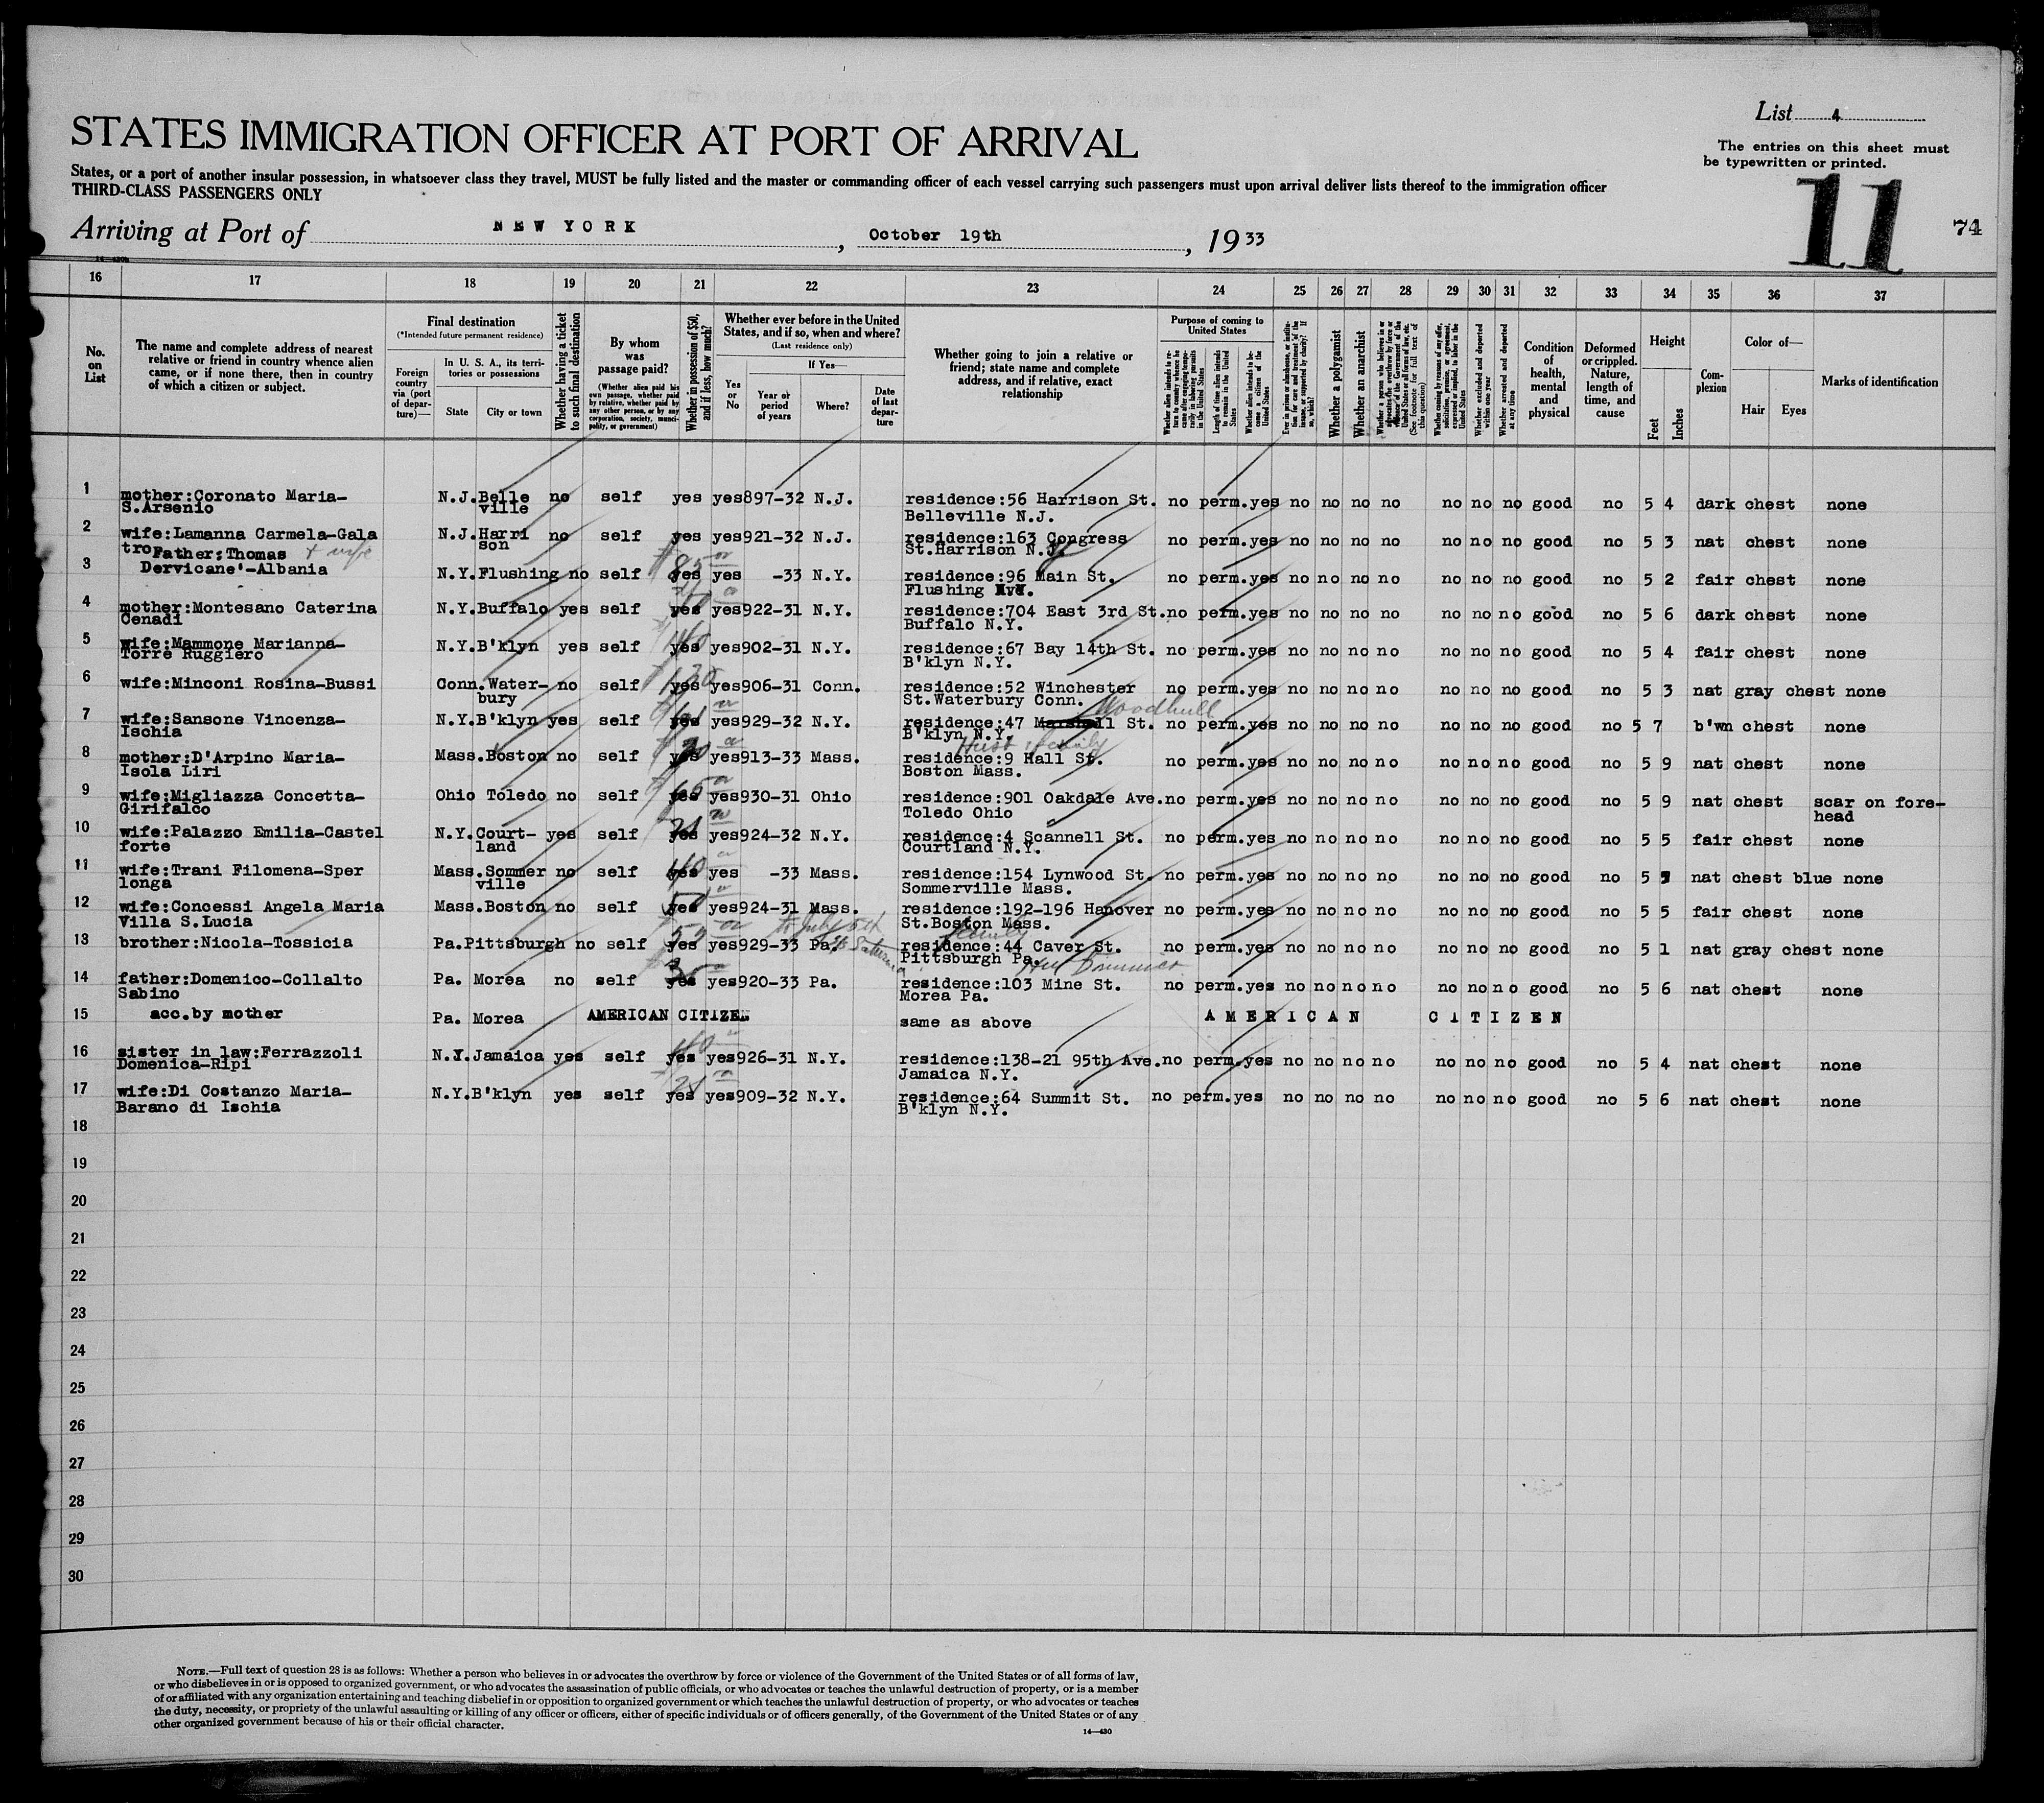 List 4
STATES IMMIGRATION OFFICER AT PORT OF ARRIVAL
The entries on this sheet must
be typewritten or printed.
States, or a port of another insular possession, in whatsoever class they travel, MUST be fully listed and the master or commanding officer of each vessel carrying such passengers must upon arrival deliver lists thereof to the immigration officer
THIRD-CLASS PASSENGERS ONLY
11
74
Arriving at Port of NEW YORK, October 19th, 1933
16 17 18 19 20 21 22 23 24 25 26 27 28 29 30 31 32 33 34 35 36 37
No. on List
The name and complete address of nearest relative or friend in country whence alien came, or if none there, then in country of which a citizen or subject.
Final destination
(*Intended future permanent residence)
Foreign country via (port of departure)—
In U. S. A., its territories or possessions
State
City or town
Whether having a ticket to such final destination
By whom was passage paid?
(Whether alien paid his own passage, whether paid by relative, whether paid by any other person, or by any corporation, society, municipality, or government)
Whether in possession of $50, and if less, how much?
Whether ever before in the United States, and if so, when and where?
(Last residence only)
Yes or No
If Yes—
Year or period of years
Where?
Date of last departure
Whether going to join a relative or friend; state name and complete address, and if relative, exact relationship
Purpose of coming to United States
Whether alien intends to return to country whence he came after engaging temporarily in laboring pursuits in United States
Length of time alien intends to remain in the United States
Whether alien intends to become a citizen of the United States
Ever in prison or almshouse, or institution for care and treatment of the insane, or supported by charity? If so, which?
Whether a polygamist
Whether an anarchist
(See footnote for full text of this question)
Whether coming by reason of any offer, solicitation, promise, or agreement, expressed or implied, to labor in the United States
Whether excluded and deported within one year
Whether arrested and deported at any time
Condition of health, mental and physical
Deformed or crippled. Nature, length of time, and cause
Height
Feet
Inches
Complexion
Color of—
Hair
Eyes
Marks of identification
1 mother:Coronato Maria- N.J. Belle no self yes yes 897-32 N.J. residence:56 Harrison St. no perm. yes no no no no no no no good no 5 4 dark chest none
S.Arsenio ville Belleville N.J.
2 wife:Lamanna Carmela-Gala N.J. Harri no self yes yes 921-32 N.J. residence:163 Congress no perm. yes no no no no no no no good no 5 3 nat chest none
tro son St.Harrison N.J.
3 Father:Thomas + wife
Dervicane'-Albania N.Y. Flushing no self 85 yes yes -33 N.Y. residence:96 Main St. no perm. yes no no no no no no no good no 5 2 fair chest none
Flushing
4 mother:Montesano Caterina N.Y. Buffalo yes self yes yes 922-31 N.Y. residence:704 East 3rd St. no perm. yes no no no no no no no good no 5 6 dark chest none
Cenadi Buffalo N.Y.
5 wife:Mammone Marianna- N.Y. B'klyn yes self yes yes 902-31 N.Y. residence:67 Bay 14th St. no perm. yes no no no no no no no good no 5 4 fair chest none
Torre Ruggiero B'klyn N.Y.
6 wife:Minconi Rosina-Bussi Conn. Water- no self yes yes 906-31 Conn. residence:52 Winchester no perm. yes no no no no no no no good no 5 3 nat gray chest none
bury St.Waterbury Conn.
Woodhull
7 wife:Sansone Vincenza- N.Y. B'klyn yes self yes yes 929-32 N.Y. residence:47 Marshall St. no perm. yes no no no no no no no good no 5 7 b'wn chest none
Ischia B'klyn N.Y.
8 mother:D'Arpino Maria- Mass. Boston no self yes yes 913-33 Mass. residence:9 Hall St. no perm. yes no no no no no no no good no 5 9 nat chest none
Isola Liri Boston Mass.
9 wife:Migliazza Concetta- Ohio Toledo no self yes yes 930-31 Ohio residence:901 Oakdale Ave. no perm. yes no no no no no no no good no 5 9 nat chest scar on fore-
Girifalco Toledo Ohio head
10 wife:Palazzo Emilia-Castel N.Y. Court- yes self yes yes 924-32 N.Y. residence:4 Scannell St. no perm. yes no no no no no no no good no 5 5 fair chest none
forte land Courtland N.Y.
11 wife:Trani Filomena-Sper Mass. Sommer no self 40 yes yes -33 Mass. residence:154 Lynwood St. no perm. yes no no no no no no no good no 5 nat chest blue none
longa ville Sommerville Mass.
12 wife:Concessi Angela Maria Mass. Boston no self yes yes 924-31 Mass. residence:192-196 Hanover no perm. yes no no no no no no no good no 5 5 fair chest none
Villa S.Lucia St.Boston Mass.
family
13 brother:Nicola-Tossicia Pa. Pittsburgh no self yes yes 929-33 Pa. residence:44 Caver St. no perm. yes no no no no no no no good no 5 1 nat gray chest none
Pittsburgh Pa.
14 father:Domenico-Collalto Pa. Morea no self yes yes 920-33 Pa. residence:103 Mine St. no perm. yes no no no no no no no good no 5 6 nat chest none
Sabino Morea Pa.
15 acc.by mother Pa. Morea AMERICAN CITIZEN same as above AMERICAN CITIZEN
16 sister in law:Ferrazzoli N.Y. Jamaica yes self yes yes 926-31 N.Y. residence:138-21 95th Ave. no perm. yes no no no no no no no good no 5 4 nat chest none
Domenica-Ripi Jamaica N.Y.
17 wife:Di Costanzo Maria- N.Y. B'klyn yes self yes yes 909-32 N.Y. residence:64 Summit St. no perm. yes no no no no no no no good no 5 6 nat chest none
Barano di Ischia B'klyn N.Y.
18
19
20
21
22
23
24
25
26
27
28
29
30
NOTE.—Full text of question 28 is as follows: Whether a person who believes in or advocates the overthrow by force or violence of the Government of the United States or of all forms of law,
or who disbelieves in or is opposed to organized government, or who advocates the assassination of public officials, or who advocates or teaches the unlawful destruction of property, or is a member
of or affiliated with any organization entertaining and teaching disbelief in or opposition to organized government or which teaches the unlawful destruction of property, or who advocates or teaches
the duty, necessity, or propriety of the unlawful assaulting or killing of any officer or officers, either of specific individuals or of officers generally, of the Government of the United States or of any
other organized government because of his or their official character.
14—430